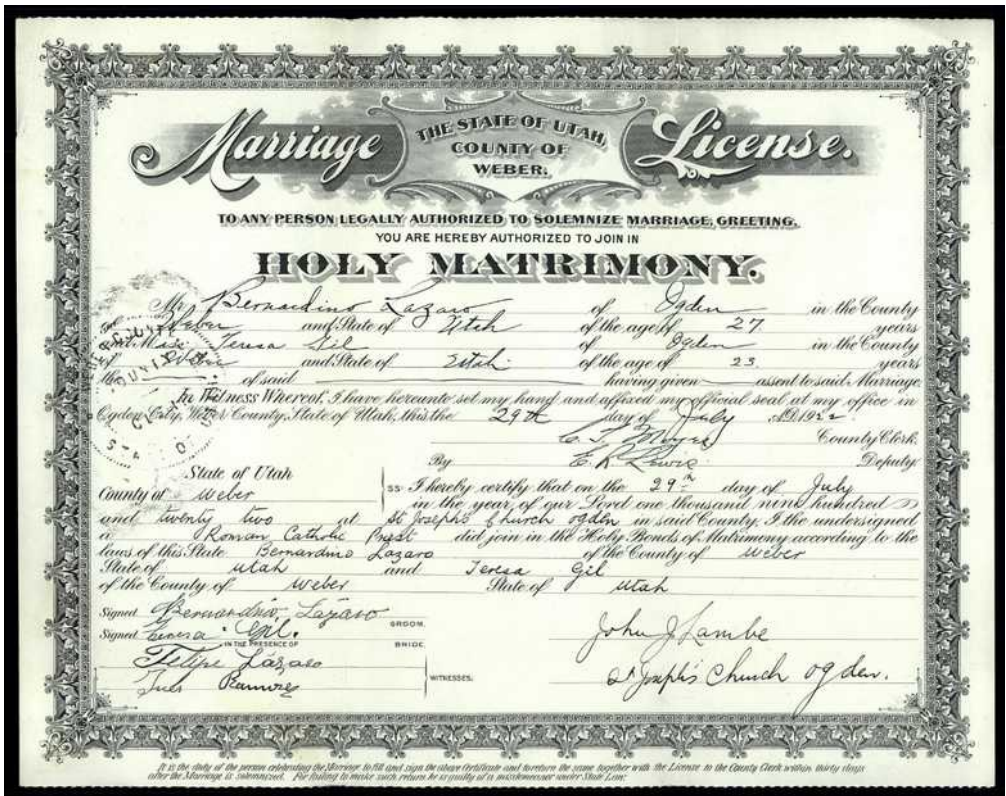 Marriage License.
THE STATE OF UTAH,
COUNTY OF
WEBER.
TO ANY PERSON LEGALLY AUTHORIZED TO SOLEMNIZE MARRIAGE, GREETING.
YOU ARE HEREBY AUTHORIZED TO JOIN IN
HOLY MATRIMONY.
Mr. Bernardino Lazaro of Ogden in the County
of Weber and State of Utah of the age of 27 years
and Miss Teresa Gil of Ogden in the County
of Weber and State of Utah of the age of 23 years
the of said having given assent to said Marriage.
In Witness Whereof, I have hereunto set my hand and affixed my official seal at my office in
Ogden City, Weber County, State of Utah, this the 29th day of July A.D. 1922.
County Clerk.
By E. R. Lewis Deputy
State of Utah
County of Weber ss I hereby certify that on the 29th day of July
in the year of our Lord one thousand nine hundred
and twenty two at St Joseph's Church Ogden in said County, I the undersigned
a Roman Catholic Priest did join in the Holy Bonds of Matrimony according to the
laws of this State Bernardino Lazaro of the County of Weber
State of Utah and Teresa Gil
of the County of Weber State of Utah
Signed Bernardino Lázaro GROOM.
Signed Teresa Gil. BRIDE.
IN THE PRESENCE OF
Felipe Lázaro
Ramirez
WITNESSES:
John J Lambe
St Joseph's Church Ogden.
It is the duty of the person celebrating the Marriage to fill and sign the above Certificate and to return the same together with the License to the County Clerk within thirty days
after the Marriage is solemnized. For failing to make such return he is guilty of a misdemeanor under State Law.